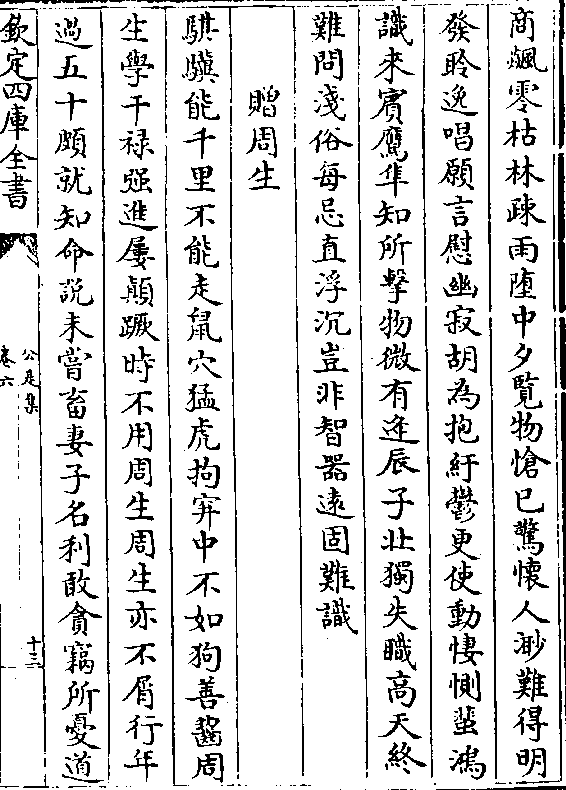 商飇零枯林疎雨墮中夕覽物愴已驚懷人渺難得明
發聆逸唱願言慰幽寂胡為抱紆鬱更使動悽惻蜚鴻
識來賓鷹隼知所擊物微有逢辰子壯獨失職高天終
難問淺俗每忌直浮沉豈非智器遠固難識
贈周生
騏驥能千里不能走鼠穴猛虎拘穽中不如狗善齧周
生學干禄强進屢顛蹶時不用周生周生亦不屑行年
過五十頗就知命說未嘗畜妻子名利敢貪竊所憂道
欽定四庫全書
公是集
卷六
十三